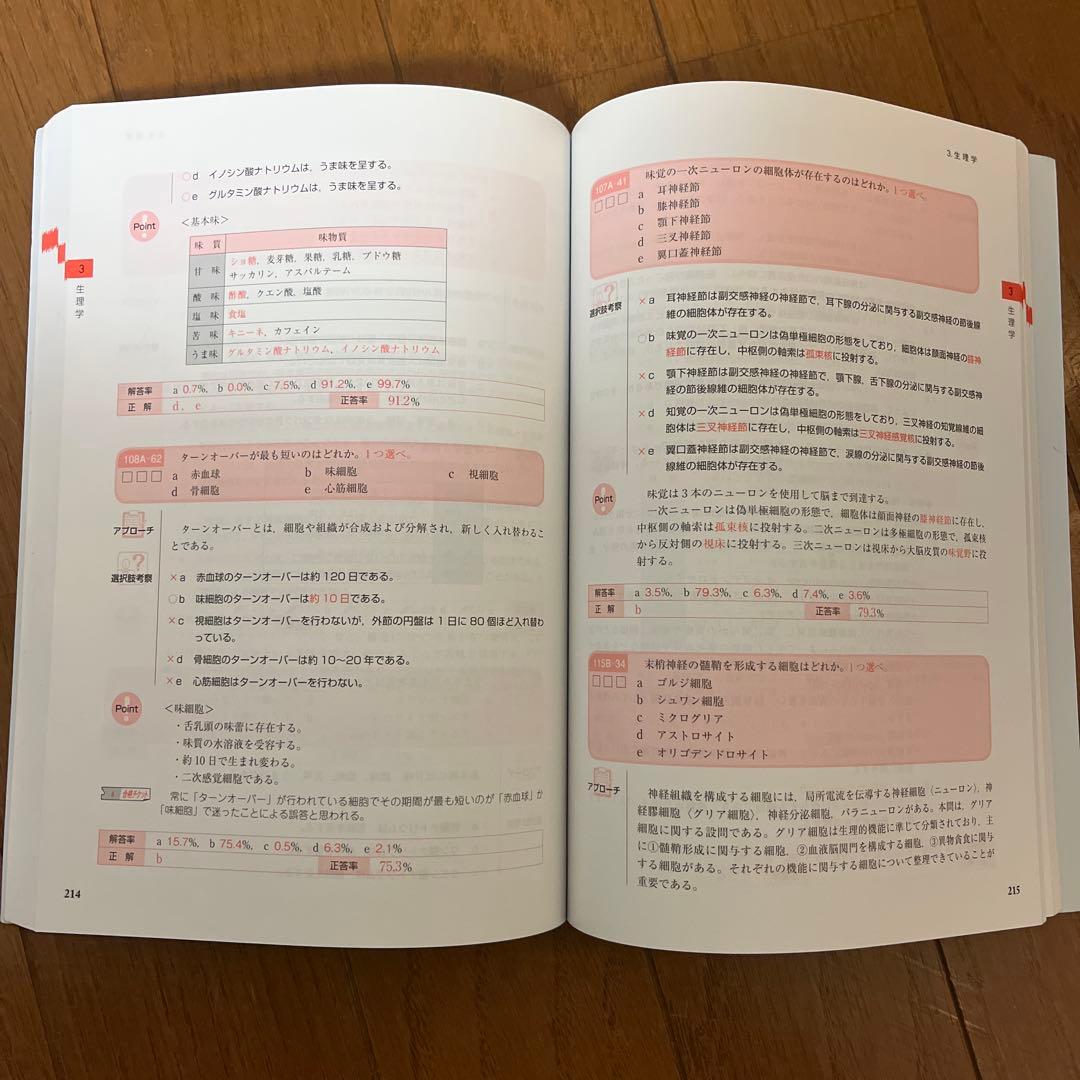 ○d イノシン酸ナトリウムは，うま味を呈する。
○e グルタミン酸ナトリウムは，うま味を呈する。
Point
＜基本味＞
味 質 味物質
甘 味 ショ糖，麦芽糖，果糖，乳糖，ブドウ糖
サッカリン，アスパルテーム
酸 味 酢酸，クエン酸，塩酸
塩 味 食塩
苦 味 キニーネ，カフェイン
うま味 グルタミン酸ナトリウム，イノシン酸ナトリウム
3
生理学
解答率 a 0.7%, b 0.0%, c 7.5%, d 91.2%, e 99.7%
正 解 d，e 正答率 91.2%
108A-62 ターンオーバーが最も短いのはどれか。1つ選べ。
□□□ a 赤血球 b 味細胞 c 視細胞
d 骨細胞 e 心筋細胞
アプローチ
ターンオーバーとは，細胞や組織が合成および分解され，新しく入れ替わるこ
とである。
選択肢考察
×a 赤血球のターンオーバーは約120日である。
○b 味細胞のターンオーバーは約10日である。
×c 視細胞はターンオーバーを行わないが，外節の円盤は1日に80個ほど入れ替わ
っている。
×d 骨細胞のターンオーバーは約10〜20年である。
×e 心筋細胞はターンオーバーを行わない。
Point
＜味細胞＞
・舌乳頭の味蕾に存在する。
・味質の水溶液を受容する。
・約10日で生まれ変わる。
・二次感覚細胞である。
合格チケット
常に「ターンオーバー」が行われている細胞でその期間が最も短いのが「赤血球」か
「味細胞」で迷ったことによる誤答と思われる。
解答率 a 15.7%, b 75.4%, c 0.5%, d 6.3%, e 2.1%
正 解 b 正答率 75.3%
214
3.生理学
107A-41 味覚の一次ニューロンの細胞体が存在するのはどれか。1つ選べ。
□□□ a 耳神経節
b 膝神経節
c 顎下神経節
d 三叉神経節
e 翼口蓋神経節
選択肢考察
×a 耳神経節は副交感神経の神経節で，耳下腺の分泌に関与する副交感神経の節後線
維の細胞体が存在する。
○b 味覚の一次ニューロンは偽単極細胞の形態をしており，細胞体は顔面神経の膝神
経節に存在し，中枢側の軸索は孤束核に投射する。
×c 顎下神経節は副交感神経の神経節で，顎下腺，舌下腺の分泌に関与する副交感神
経の節後線維の細胞体が存在する。
×d 知覚の一次ニューロンは偽単極細胞の形態をしており，三叉神経の知覚線維の細
胞体は三叉神経節に存在し，中枢側の軸索は三叉神経感覚核に投射する。
×e 翼口蓋神経節は副交感神経の神経節で，涙腺の分泌に関与する副交感神経の節後
線維の細胞体が存在する。
3
生理学
Point
味覚は3本のニューロンを使用して脳まで到達する。
一次ニューロンは偽単極細胞の形態で，細胞体は顔面神経の膝神経節に存在し，
中枢側の軸索は孤束核に投射する。二次ニューロンは多極細胞の形態で，孤束核
から反対側の視床に投射する。三次ニューロンは視床から大脳皮質の味覚野に投
射する。
解答率 a 3.5%, b 79.3%, c 6.3%, d 7.4%, e 3.6%
正 解 b 正答率 79.3%
115B-34 末梢神経の髄鞘を形成する細胞はどれか。1つ選べ。
□□□ a ゴルジ細胞
b シュワン細胞
c ミクログリア
d アストロサイト
e オリゴデンドロサイト
アプローチ
神経組織を構成する細胞には，局所電流を伝導する神経細胞〈ニューロン〉，神
経膠細胞〈グリア細胞〉，神経分泌細胞，パラニューロンがある。本問は，グリア
細胞に関する設問である。グリア細胞は生理的機能に準じて分類されており，主
に①髄鞘形成に関与する細胞，②血液脳関門を構成する細胞，③異物貪食に関与
する細胞がある。それぞれの機能に関与する細胞について整理できていることが
重要である。
215